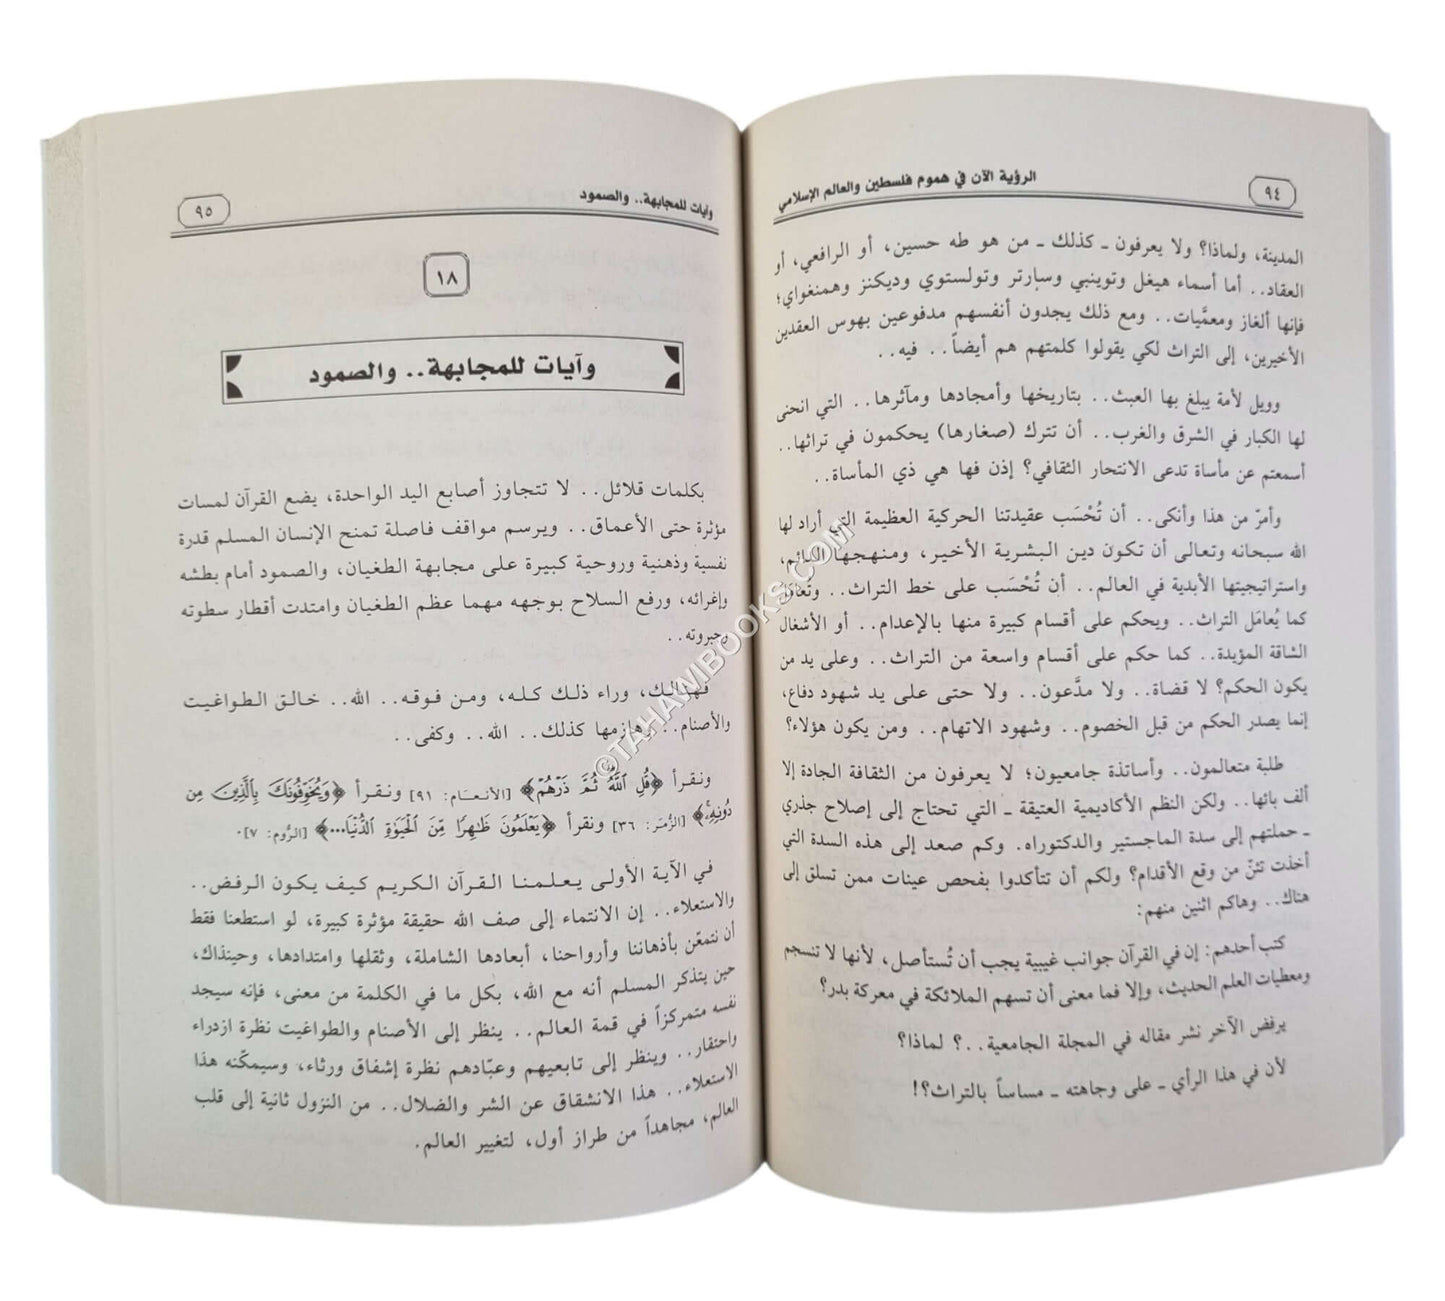 ٩٤
الرؤية الآن في هموم فلسطين والعالم الإسلامي
المدينة، ولماذا؟ ولا يعرفون ـ كذلك ـ من هو طه حسين، أو الرافعي، أو
العقاد.. أما أسماء هيغل وتوينبي وسارتر وتولستوي وديكنز وهمنغواي؛
فإنها ألغاز ومعمَّيات.. ومع ذلك يجدون أنفسهم مدفوعين بهوس العقدين
الأخيرين، إلى التراث لكي يقولوا كلمتهم هم أيضاً.. فيه..
وويل لأمة يبلغ بها العبث.. بتاريخها وأمجادها ومآثرها.. التي انحنى
لها الكبار في الشرق والغرب.. أن تترك (صغارها) يحكمون في تراثها..
أسمعتم عن مأساة تدعى الانتحار الثقافي؟ إذن فها هي ذي المأساة..
وأمرّ من هذا وأنكى.. أن تُحْسَب عقيدتنا الحركية العظيمة التي أراد لها
الله سبحانه وتعالى أن تكون دين البشرية الأخير، ومنهجها الدائم،
واستراتيجيتها الأبدية في العالم.. أن تُحْسَب على خط التراث.. وتُعامَل
كما يُعامَل التراث.. ويحكم على أقسام كبيرة منها بالإعدام.. أو الأشغال
الشاقة المؤبدة.. كما حكم على أقسام واسعة من التراث.. وعلى يد من
يكون الحكم؟ لا قضاة.. ولا مدَّعون.. ولا حتى على يد شهود دفاع،
إنما يصدر الحكم من قبل الخصوم.. وشهود الاتهام.. ومن يكون هؤلاء؟
طلبة متعالمون.. وأساتذة جامعيون؛ لا يعرفون من الثقافة الجادة إلا
ألف بائها.. ولكن النظم الأكاديمية العتيقة ـ التي تحتاج إلى إصلاح جذري
ـ حملتهم إلى سدة الماجستير والدكتوراه. وكم صعد إلى هذه السدة التي
أخذت تئنّ من وقع الأقدام؟ ولكم أن تتأكدوا بفحص عينات ممن تسلق إلى
هناك.. وهاكم اثنين منهم:
كتب أحدهم: إن في القرآن جوانب غيبية يجب أن تُستأصل، لأنها لا تنسجم
ومعطيات العلم الحديث، وإلا فما معنى أن تسهم الملائكة في معركة بدر؟
يرفض الآخر نشر مقاله في المجلة الجامعية..؟ لماذا؟
لأن في هذا الرأي ـ على وجاهته ـ مساساً بالتراث؟!
وآيات للمجابهة.. والصمود
٩٥
١٨
وآيات للمجابهة.. والصمود
بكلمات قلائل.. لا تتجاوز أصابع اليد الواحدة، يضع القرآن لمسات
مؤثرة حتى الأعماق.. ويرسم مواقف فاصلة تمنح الإنسان المسلم قدرة
نفسية وذهنية وروحية كبيرة على مجابهة الطغيان، والصمود أمام بطشه
وإغرائه، ورفع السلاح بوجهه مهما عظم الطغيان وامتدت أقطار سطوته
وجبروته..
فهنالك، وراء ذلك كله، ومن فوقه.. الله.. خالق الطواغيت
والأصنام.. وهازمها كذلك.. الله.. وكفى..
ونقرأ ﴿قُلِ ٱللَّهُ ثُمَّ ذَرْهُمْ﴾ [الأنعام: ٩١] ونقرأ ﴿وَيُخَوِّفُونَكَ بِٱلَّذِينَ مِن
دُونِهِۦ﴾ [الزُّمَر: ٣٦] ونقرأ ﴿يَعْلَمُونَ ظَٰهِرًا مِّنَ ٱلْحَيَوٰةِ ٱلدُّنْيَا...﴾ [الرُّوم: ٧].
في الآية الأولى يعلمنا القرآن الكريم كيف يكون الرفض..
والاستعلاء.. إن الانتماء إلى صف الله حقيقة مؤثرة كبيرة، لو استطعنا فقط
أن نتمعّن بأذهاننا وأرواحنا، أبعادها الشاملة، وثقلها وامتدادها، وحينذاك،
حين يتذكر المسلم أنه مع الله، بكل ما في الكلمة من معنى، فإنه سيجد
نفسه متمركزاً في قمة العالم.. ينظر إلى الأصنام والطواغيت نظرة ازدراء
واحتقار.. وينظر إلى تابعيهم وعبّادهم نظرة إشفاق ورثاء، وسيمكّنه هذا
الاستعلاء.. هذا الانشقاق عن الشر والضلال.. من النزول ثانية إلى قلب
العالم، مجاهداً من طراز أول، لتغيير العالم.
©TAHAWIBOOKS.COM